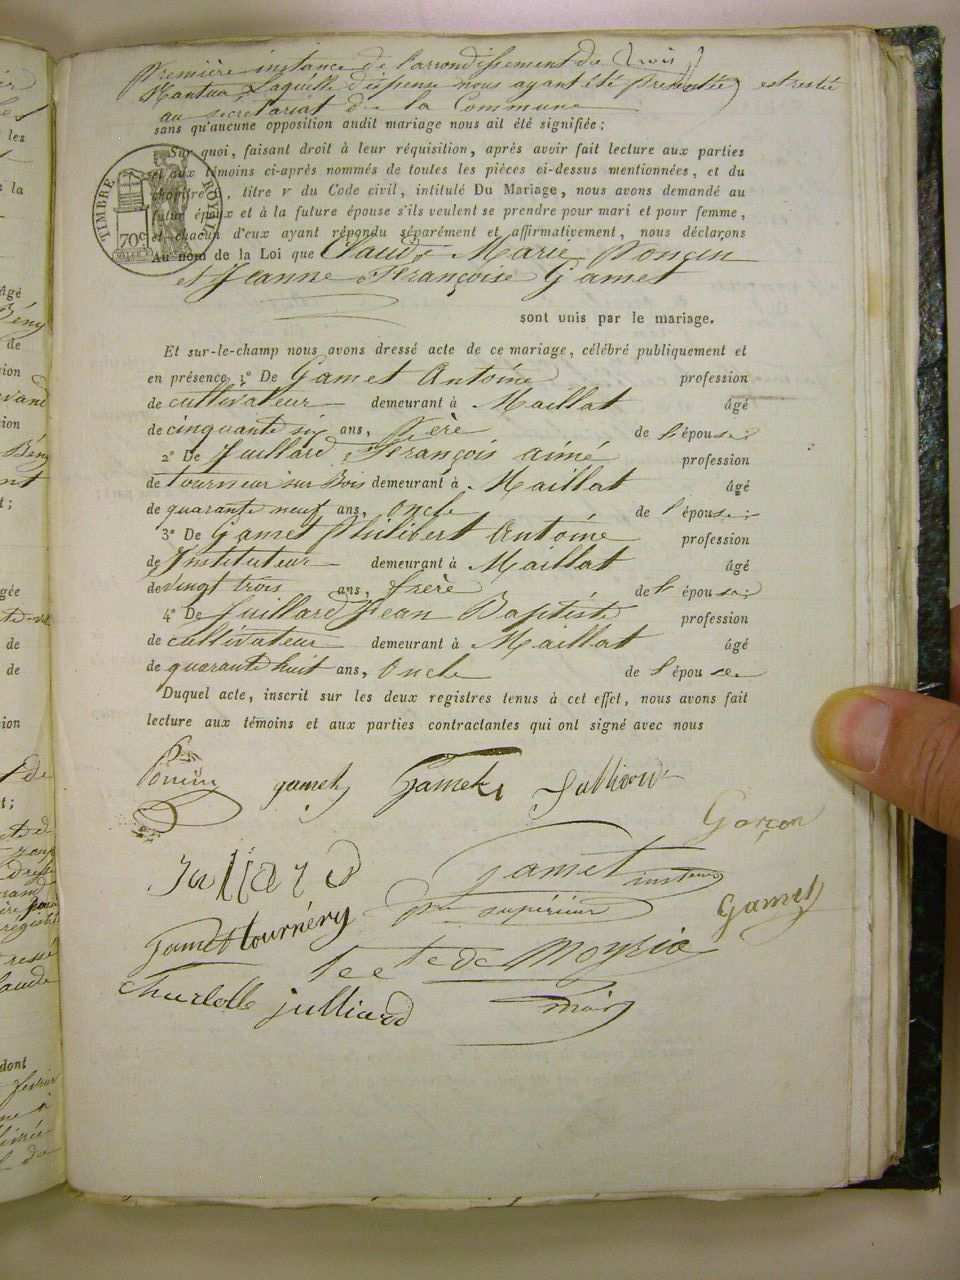 Première instance de l'arrondissement de
Nantua, Laquelle dispense nous ayant été présentée est restée
au secretariat de la Commune
sans qu'aucune opposition audit mariage nous ait été signifiée ;
Sur quoi, faisant droit à leur réquisition, après avoir fait lecture aux parties
et aux témoins ci-après nommés de toutes les pièces ci-dessus mentionnées, et du
chapitre , titre v du Code civil, intitulé Du Mariage, nous avons demandé au
futur époux et à la future épouse s'ils veulent se prendre pour mari et pour femme,
et chacun d'eux ayant répondu séparément et affirmativement, nous déclarons
Au nom de la Loi que Claude Marie Poncin
et Jeanne Françoise Gamet
TIMBRE ROYAL
70c
sont unis par le mariage.
Et sur-le-champ nous avons dressé acte de ce mariage, célébré publiquement et
en présence, 1° De Gamet Antoine profession
de cultivateur demeurant à Maillat âgé
de cinquante six ans, Père de l'épouse;
2° De Juillard François aimé profession
de tourneur sur Bois demeurant à Maillat âgé
de quarante neuf ans, oncle de l'épouse;
3° De Gamet Philibert Antoine profession
de Instituteur demeurant à Maillat âgé
de vingt trois ans, frère de l'épouse;
4° De Juillard Jean Baptiste profession
de cultivateur demeurant à Maillat âgé
de quarante huit ans, oncle de l'épouse
Duquel acte, inscrit sur les deux registres tenus à cet effet, nous avons fait
lecture aux témoins et aux parties contractantes qui ont signé avec nous
Poncin gamet Gamet
Garçon
Juilliard gamet
supérieur Gamet
Gamet tournéry
de Moyria
Charlotte julliard maire